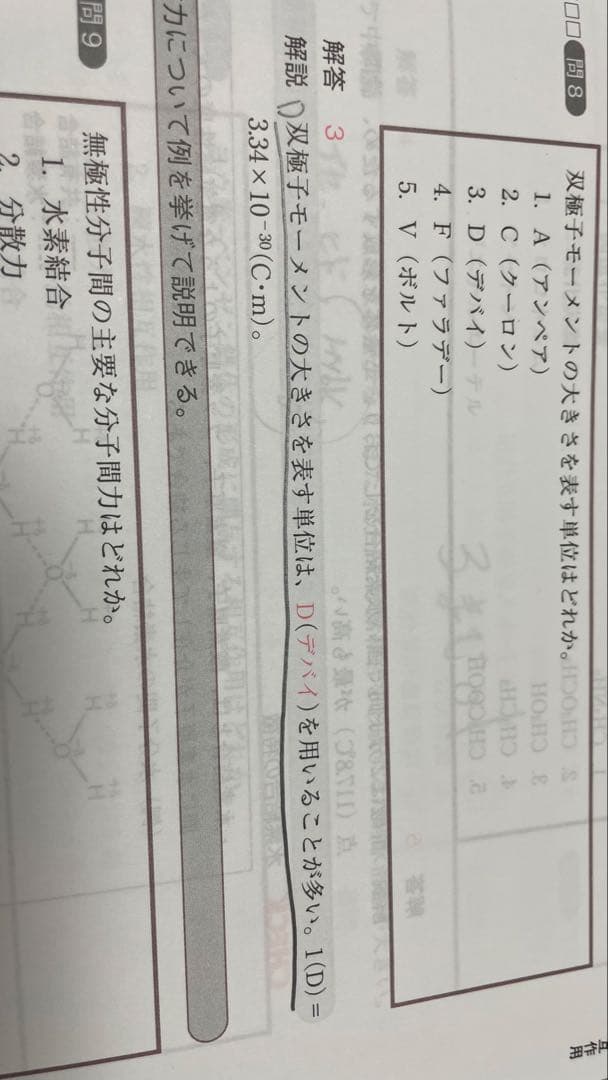 互作用
□□ 問8
双極子モーメントの大きさを表す単位はどれか。
1. A（アンペア）
2. C（クーロン）
3. D（デバイ）
4. F（ファラデー）
5. V（ボルト）
解答 3
解説 双極子モーメントの大きさを表す単位は、D(デバイ)を用いることが多い。1(D)＝
3.34×10⁻³⁰(C・m)。
力について例を挙げて説明できる。
問9
無極性分子間の主要な分子間力はどれか。
1. 水素結合
2. 分散力